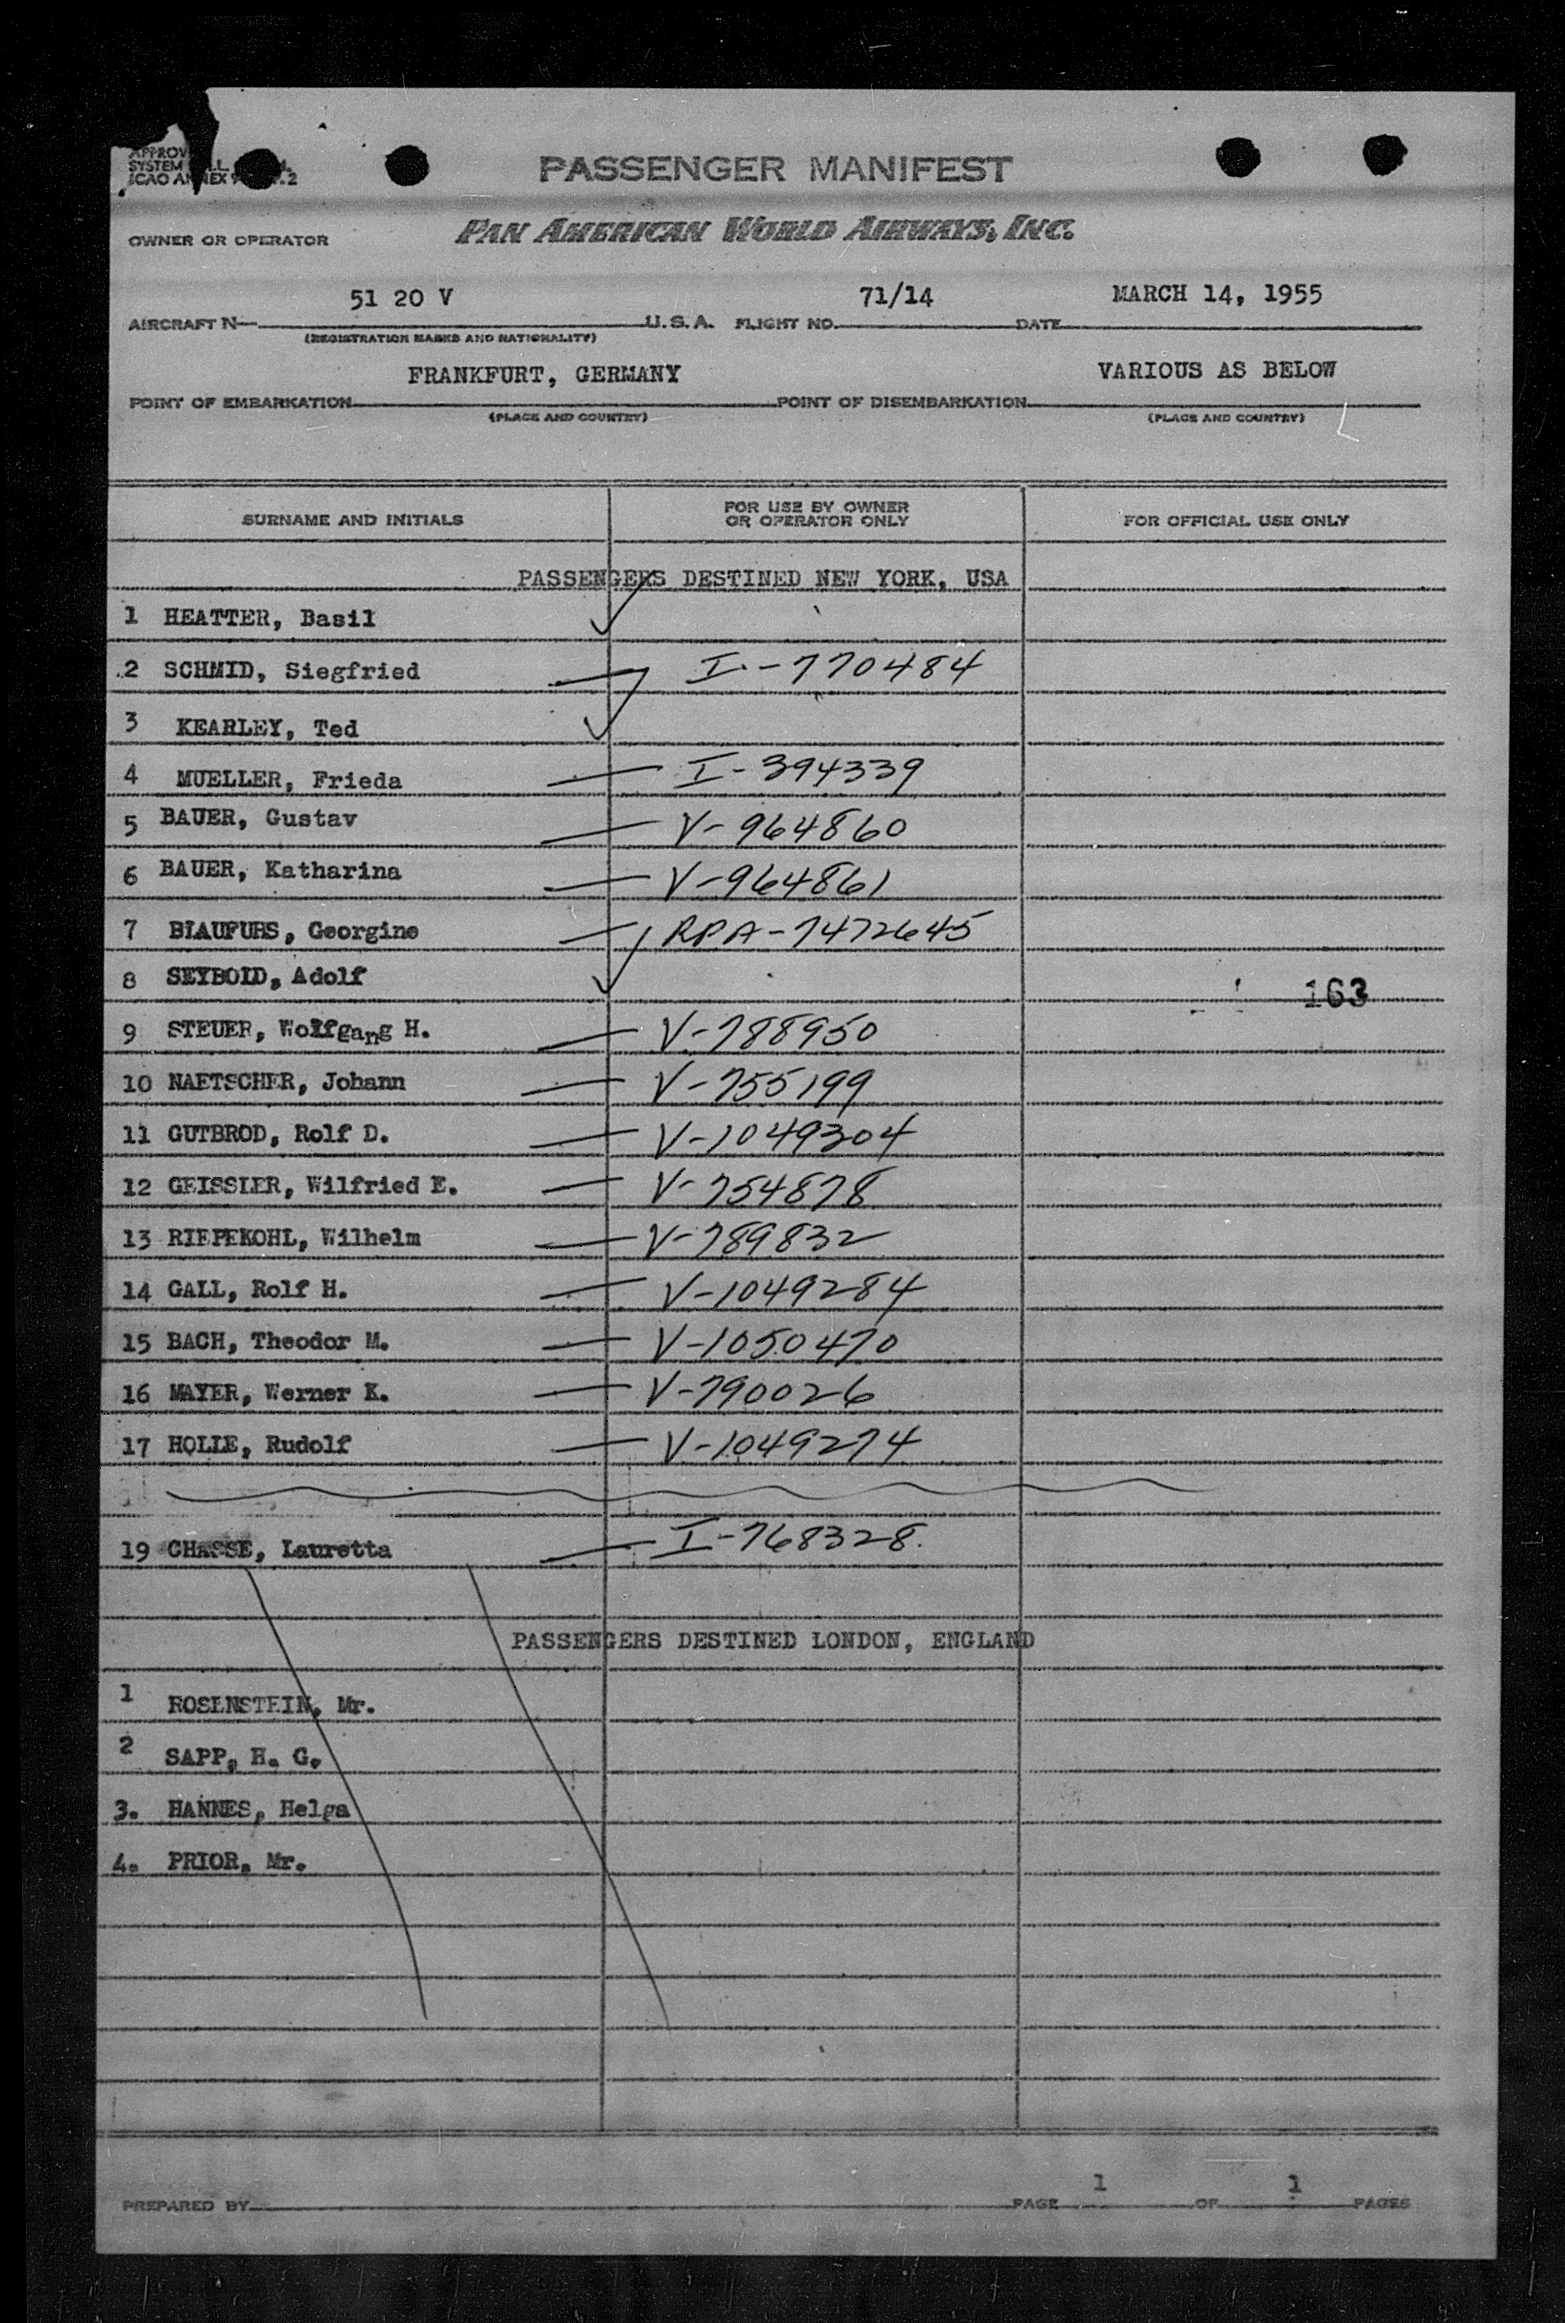 APPROV
SYSTEM
ICAO ANNEX 9 2
PASSENGER MANIFEST
OWNER OR OPERATOR PAN AMERICAN WORLD AIRWAYS, INC.
51 20 V 71/14 MARCH 14, 1955
AIRCRAFT N— U.S.A. FLIGHT NO. DATE
(REGISTRATION MARKS AND NATIONALITY)
FRANKFURT, GERMANY VARIOUS AS BELOW
POINT OF EMBARKATION POINT OF DISEMBARKATION
(PLACE AND COUNTRY) (PLACE AND COUNTRY)
SURNAME AND INITIALS FOR USE BY OWNER OR OPERATOR ONLY FOR OFFICIAL USE ONLY
PASSENGERS DESTINED NEW YORK, USA
1 HEATTER, Basil
2 SCHMID, Siegfried I-770484
3 KEARLEY, Ted
4 MUELLER, Frieda I-394339
5 BAUER, Gustav V-964860
6 BAUER, Katharina V-964861
7 BLAUFUHS, Georgine RPA-7472645
8 SEYBOLD, Adolf
163
9 STEUER, Wolfgang H. V-788950
10 NAETSCHER, Johann V-755199
11 GUTBROD, Rolf D. V-1049304
12 GEISSLER, Wilfried E. V-754878
13 RIEPEKOHL, Wilhelm V-789832
14 GALL, Rolf H. V-1049284
15 BACH, Theodor M. V-1050470
16 MAYER, Werner K. V-790026
17 HOLLE, Rudolf V-1049274
19 CHASSE, Lauretta I-768328.
PASSENGERS DESTINED LONDON, ENGLAND
1 ROSENSTEIN, Mr.
2 SAPP, H. G.
3. HANNES, Helga
4. PRIOR, Mr.
PREPARED BY PAGE 1 OF 1 PAGES